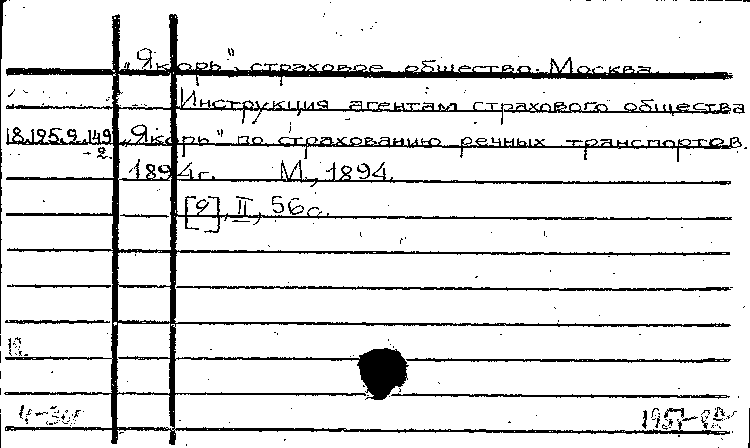 „Якорь", страховое общество. Москва.
Инструкция агентам страхового общества
18.195.9.149 „Якорь" по страхованию речных транспортов.
-2.
1894г. М., 1894.
[9], II, 56с.